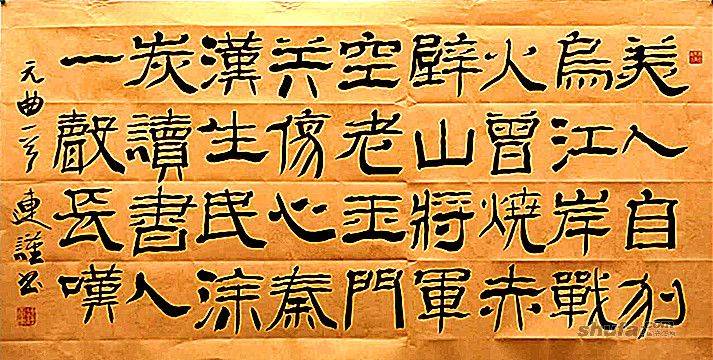 美人自刎
烏江岸戰
火曾燒赤
壁山將軍
空老玉門
关傷心秦
漢生民涂
炭讀書人
一聲長嘆
元曲一首 連謹书